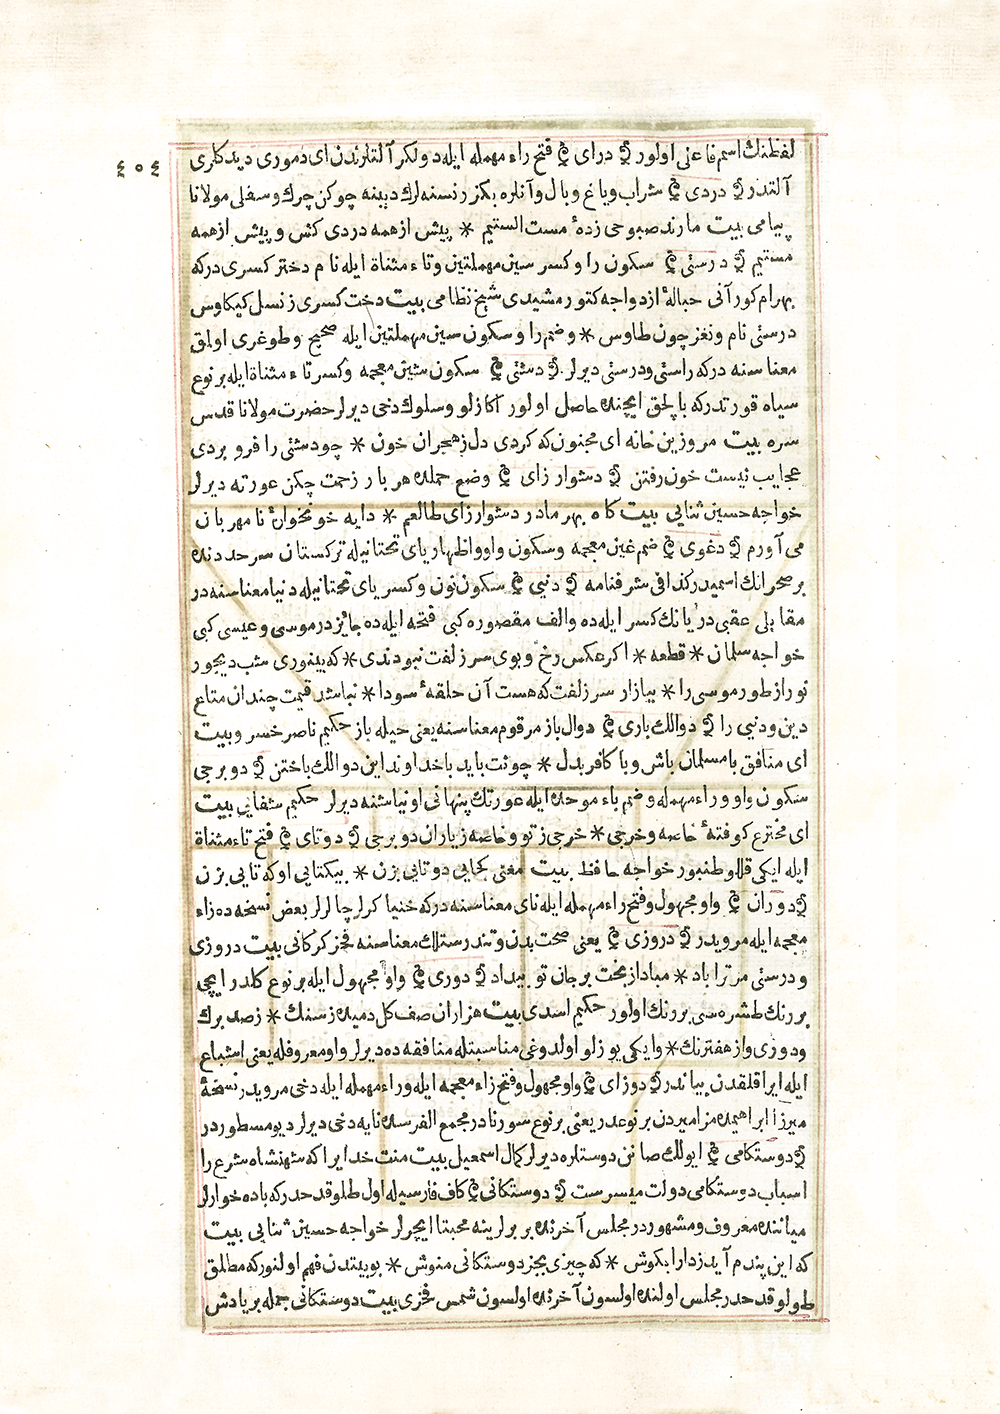 ٤٠٤
لفظنك اسم فاعلی اولور درای فتح راء مهمله ایله دولکر آلتلرندن ای دموری دیدکلری
آلتدر دردی شراب ویاغ وبال وآنلره بکزر نسنه لرك دیبنه چوکن چرك وسفلی مولانا
پیامی بیت مارند صبوحی زدهٔ مست الستیم * پیش از همه دردی کش و پیش از همه
مستیم درستی سکون را وکسر سین مهملتین وتاء مثناة ایله نام دختر کسری درکه
بهرام کورآنی حبالهٔ ازدواجه کتورمشیدی شیخ نظامی بیت دخت کسری ز نسل کیکاوس
درستی نام ونغز چون طاوس * وضم را وسکون سین مهملتین ایله صحیح وطوغری اولمق
معناسنه درکه راستی ودرستی دیرلر دشتی سکون شین معجمه وکسر تاء مثناة ایله بر نوع
سیاه قورتدرکه بالحق ایچنده حاصل اولور آکازلو وسلوك دخی دیرلر حضرت مولانا قدس
سره بیت مروزین خانه ای مجنون که کردی دل ز هجران خون * چو دستی را فرو بردی
عجایب نیست خون رفتن دشوار زای وضع حملده هر بار زحمت چکن عورته دیرلر
خواجه حسین ثنایی بیت کاه بهر مادر دشوارزای طالعم * دایه خونخوارهٔ نامهربان
می آورم دغوی ضم غین معجمه وسکون واو واظهار یای تحتانیله ترکستان سرحدنده
بر صحرانك اسمیدر کذا فی شرفنامه دنیی سکون نون وکسر یای تحتانیله دنیا معناسنه در
مقابلی عقبی در یانك کسر ایله ده والف مقصوره کبی فتحه ایله ده جائزدر موسی وعیسی کبی
خواجه سلمان * قطعه * اکر عکس رخ وبوی سر زلفت نبودندی * که بینوری شب دیجور
نور از طور موسی را * ببازار سر زلفت که هست آن حلقهٔ سودا * نباشد قیمت چندان متاع
دین ودنیی را دوالك بازی دوال باز مرقوم معناسنه یعنی حیله باز حکیم ناصر خسرو بیت
ای منافق با مسلمان باش ویا کافر بدل * چونت باید با خداوند این دوالك باختن دوبرجی
سکون واو وراء مهمله وضم باء موحده ایله عورتك پنهانی اویناشنه دیرلر حکیم شفایی بیت
ای مخترع کوفتهٔ خاصه وخرجی * خرجی ز تو وخاصه ز یاران دوبرجی دوتای فتح تاء مثناة
ایله ایکی قللو طنبور خواجه حافظ بیت مغنی کجایی دوتایی بزن * بیکتایی او که تایی بزن
دوران واو مجهول وفتح راء مهمله ایله نای معناسنه درکه خنیاکرلر چالرلر بعض نسخه ده زاء
معجمه ایله مرویدر دروزی یعنی صحت بدن وتندرستلك معناسنه فخر کرکانی بیت دروزی
ودرستی مر ترا باد * مبادا ز بخت بر جان تو بیداد دوری واو مجهول ایله بر نوع کلدر ایچی
بر رنك طشره سی بر رنك اولور حکیم اسدی بیت هزاران صف کل دمیده ز سنك * ز صد برك
ودوری واز هفت رنك * وایکی یوزلو اولدوغی مناسبتله منافقه ده دیرلر واو معروفله یعنی اشباع
ایله ایراقلقدن بیاندر دوزای واو مجهول وفتح زاء معجمه ایله وراء مهمله ایله دخی مرویدر نسخهٔ
میرزا ابراهیمده مزامیردن بر نوعدر یعنی بر نوع سورنادر مجمع الفرسده نایه دخی دیرلر دیو مسطوردر
دوستکامی ایولك صانن دوستلره دیرلر کمال اسمعیل بیت منت خدایرا که شهنشاه شرع را
اسباب دوستکامی دولت میسرست دوستکانی کاف فارسیله اول طلو قدحدرکه باده خوارلر
میاننده معروف ومشهوردر مجلس آخرنده بربرلرینه محبتا ایچرلر خواجه حسین ثنایی بیت
که این پندم آید ز دارا بکوش * که چیزی بجز دوستکانی منوش * بو بیتدن فهم اولنورکه مطلق
طولو قدحدر مجلس اولنده اولسون آخرنده اولسون شمس فخری بیت دوستکانی جمله بر یادش